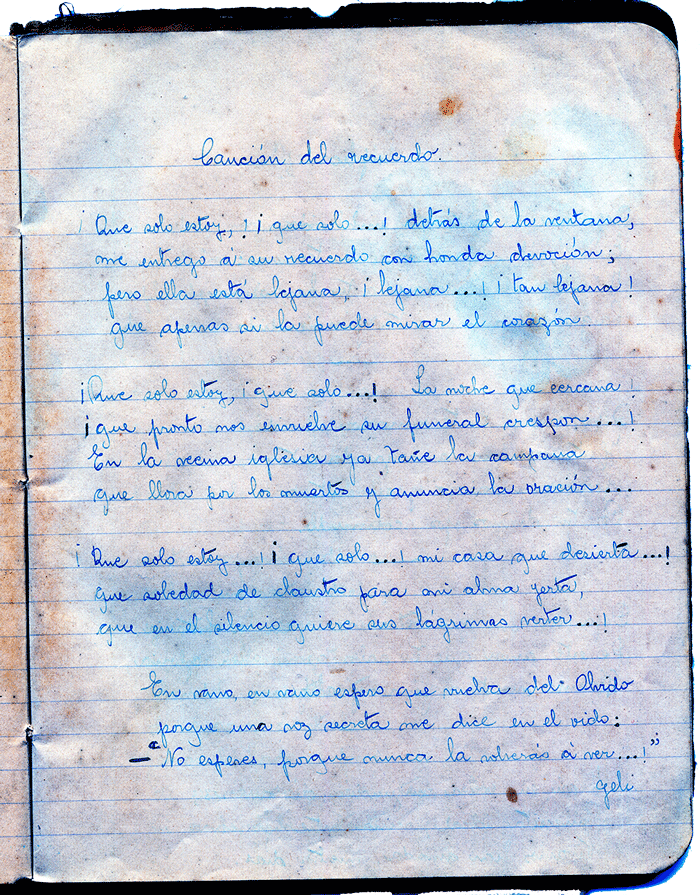 Canción del recuerdo.
¡Que solo estoy, !¡que solo...! detrás de la ventana,
me entrego á su recuerdo con honda devoción;
pero ella está lejana, ¡lejana...! ¡tan lejana!
que apenas si la puede mirar el corazón.
¡Que solo estoy, ¡que solo...! La noche que cercana!
¡que pronto nos envuelve su funeral crespon...!
En la vecina iglesia ya tañe la campana
que llora por los muertos y anuncia la oración...
¡Que solo estoy...! ¡que solo...! mi casa que desierta...!
que soledad de claustro para mi alma yerta,
que en el silencio quiere sus lágrimas verter...!
En vano, en vano espero que vuelva del Olvido
porque una voz secreta me dice en el oido:
—"No esperes, porque nunca la volverás á ver...!"
Geli